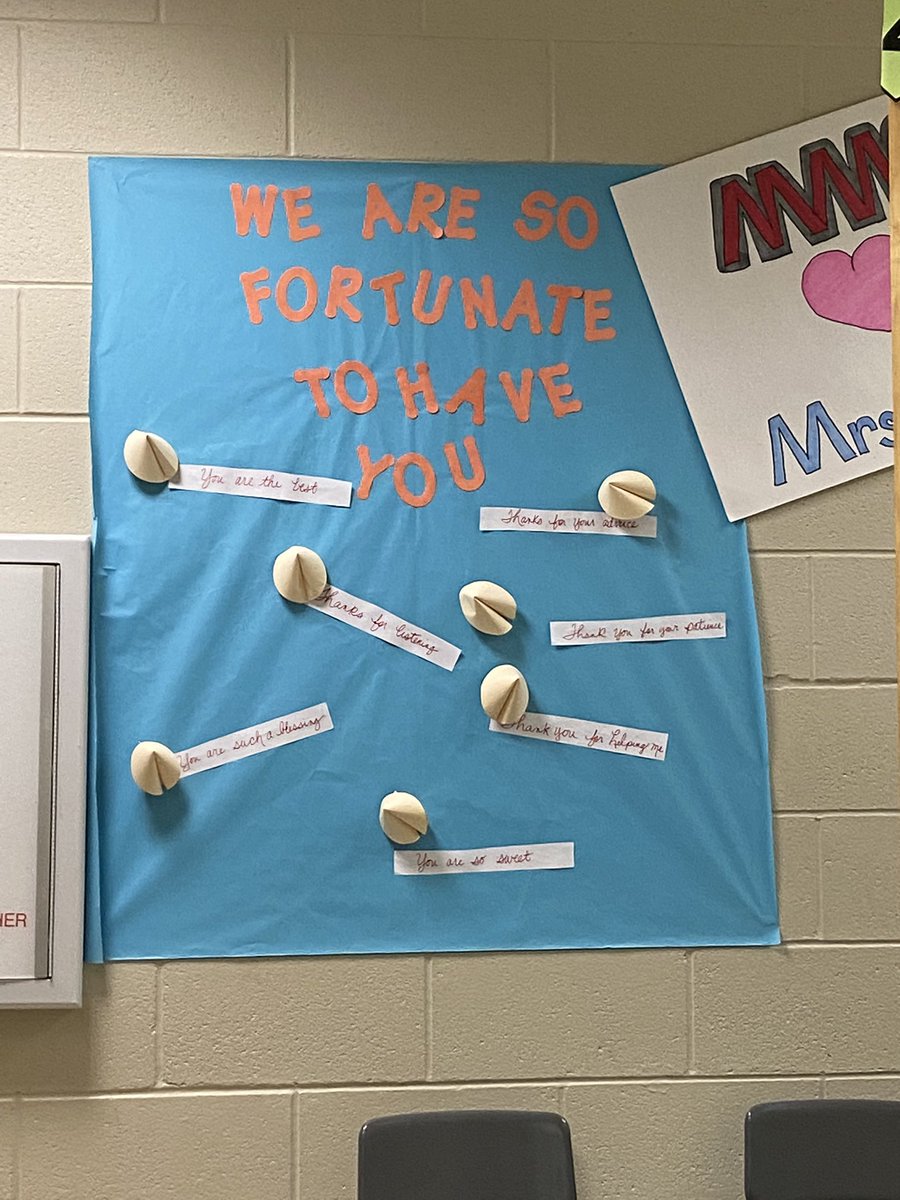 WE ARE SO
FORTUNATE
TO HAVE
YOU
You are the best
Thanks for your advice
Thanks for listening
Thank you for your patience
Thank you for helping me
You are such a blessing
You are so sweet
Mrs
HER